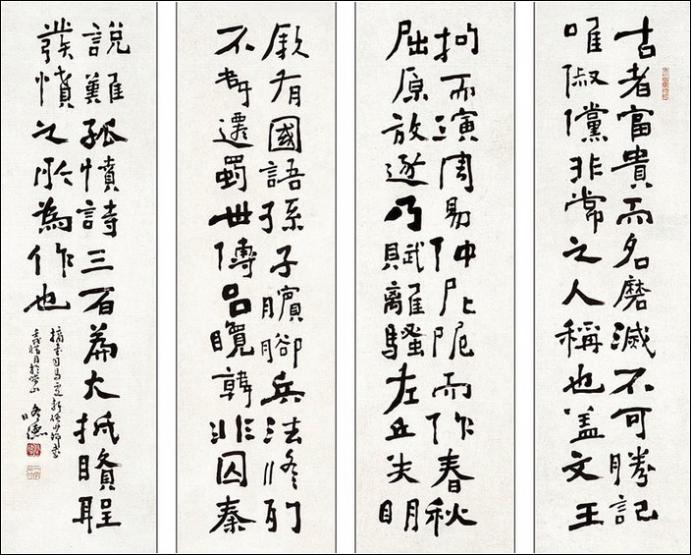 古者富貴而名磨滅不可勝記
唯俶儻非常之人稱也蓋文王
拘而演周易仲尼阨而作春秋
屈原放逐乃賦離騷左丘失明
厥有國語孫子臏腳兵法修列
不韋遷蜀世傳呂覽韓非囚秦
說難孤憤詩三百篇大抵賢聖
發憤之所為作也
司馬遷報任少卿書